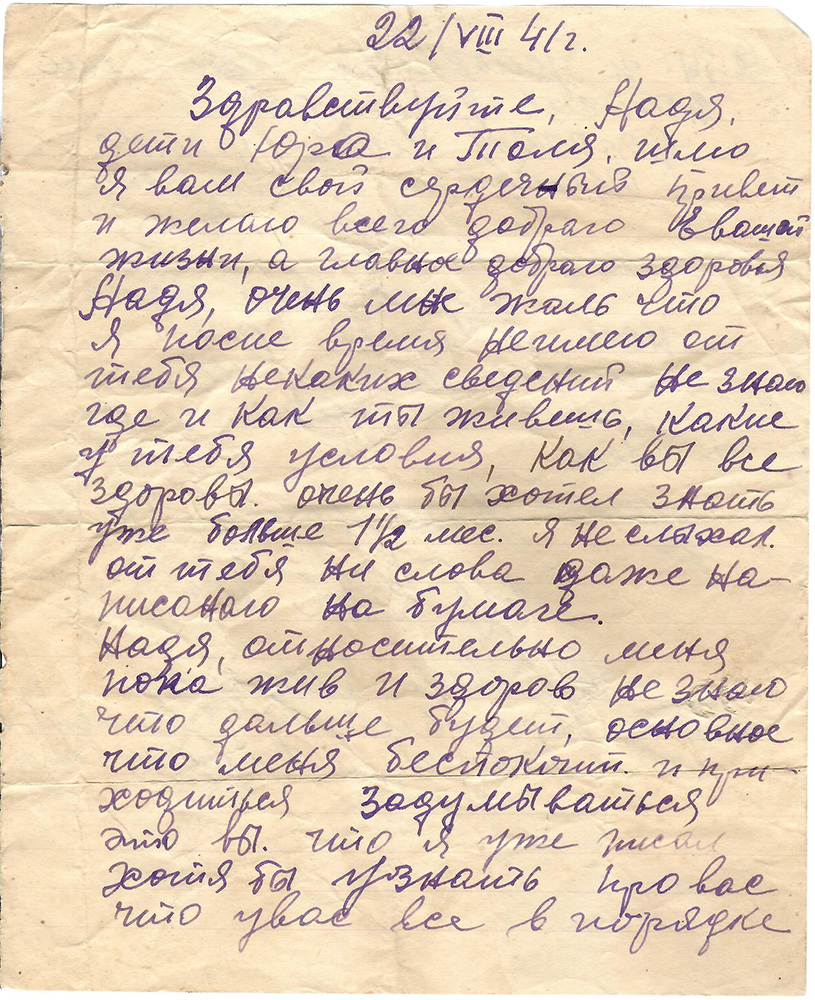 22/VIII 41г.
Здравствуйте, Надя,
дети Юра и Толя, шлю
я вам свой сердечный привет
и желаю всего добраго в вашей
жизни, а главное добраго здоровья
Надя, очень мне жаль что
я после время неимею от
тебя некаких сведений не знаю
где и как ты живешь, какие
у тебя условия, как вы все
здоровы. очень бы хотел знать
уже больше 1 1/2 мес. я не слыхал.
от тебя ни слова даже на-
писанаго на бумаге.
Надя, относительно меня
пока жив и здоров не знаю
что дальше будет, основное
что меня беспокоит. и при-
ходиться задумываться
это вы. что я уже писал
хотя бы узнать про вас
что увас все в порядке